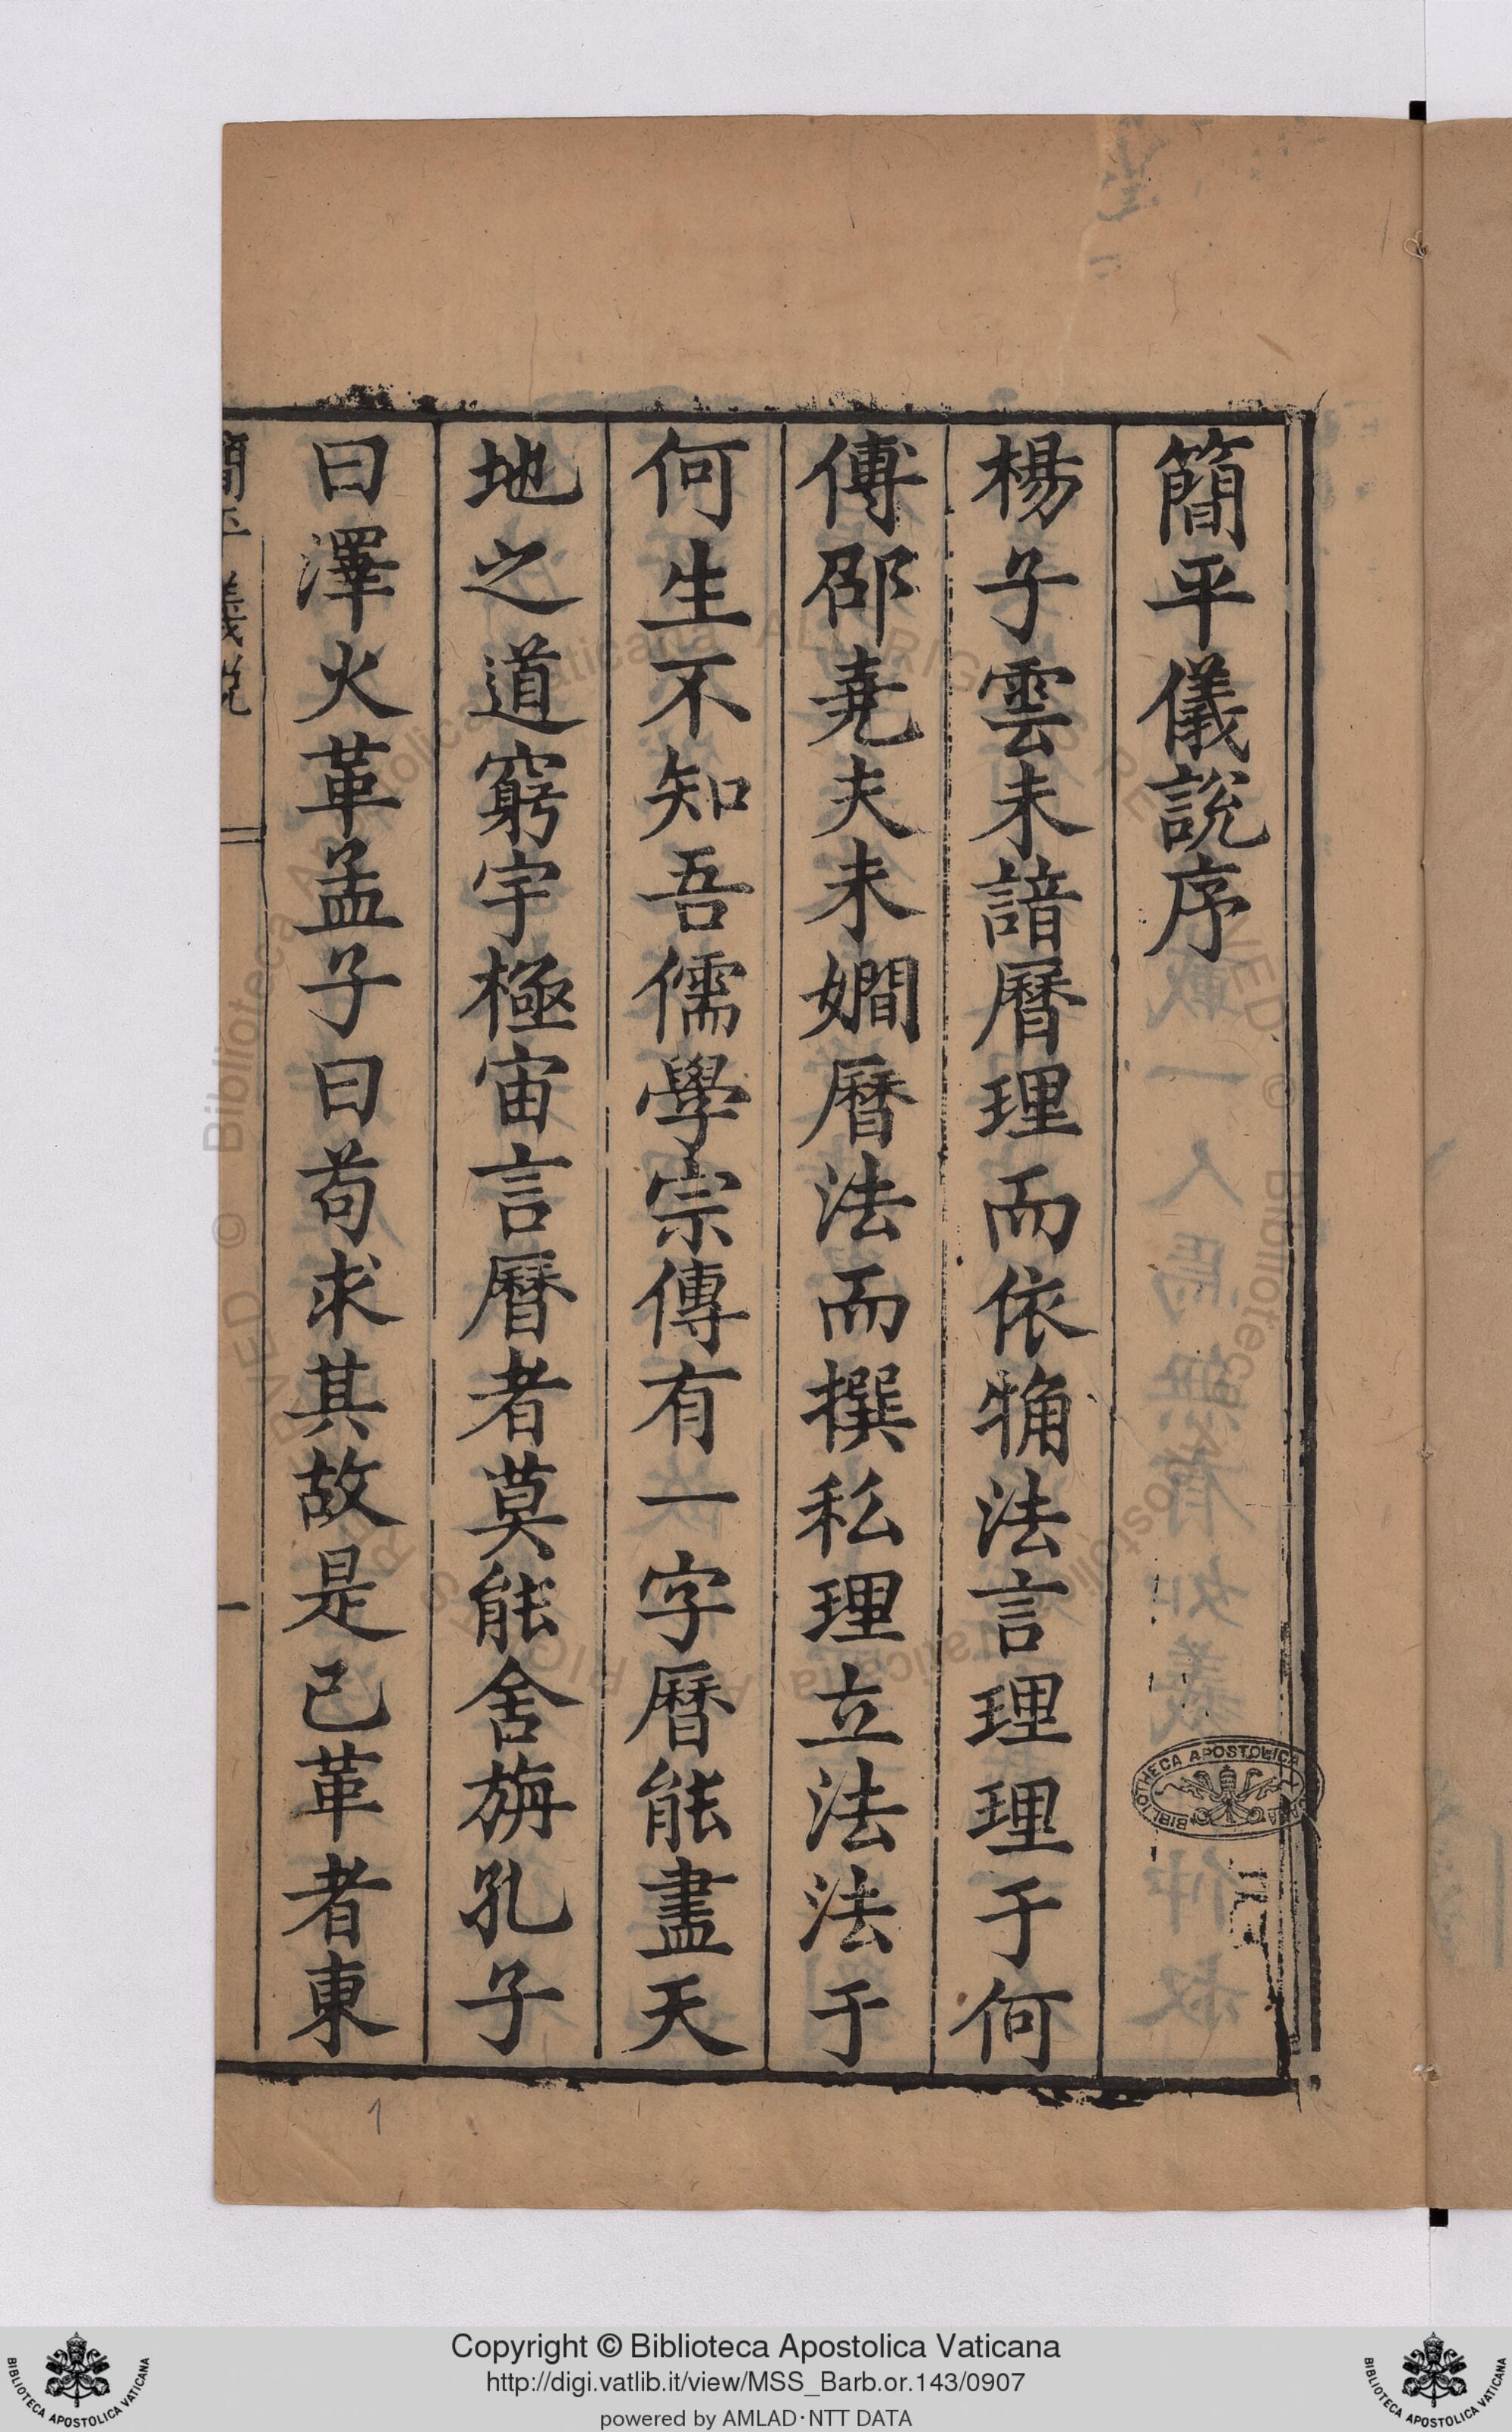 簡平儀說序
楊子雲未諳曆理而依牅法言理理于何
傅邵堯夫未嫺曆法而撰私理立法法于
何生不知吾儒學宗傳有一字曆能盡天
地之道窮宇極宙言曆者莫能舍旃孔子
曰澤火革孟子曰苟求其故是已革者東
簡平儀說
一
1
BIBLIOTHECA APOSTOLICA VATICANA
Copyright © Biblioteca Apostolica Vaticana
http://digi.vatlib.it/view/MSS_Barb.or.143/0907
powered by AMLAD·NTT DATA
BIBLIOTECA APOSTOLICA VATICANA
BIBLIOTECA APOSTOLICA VATICANA